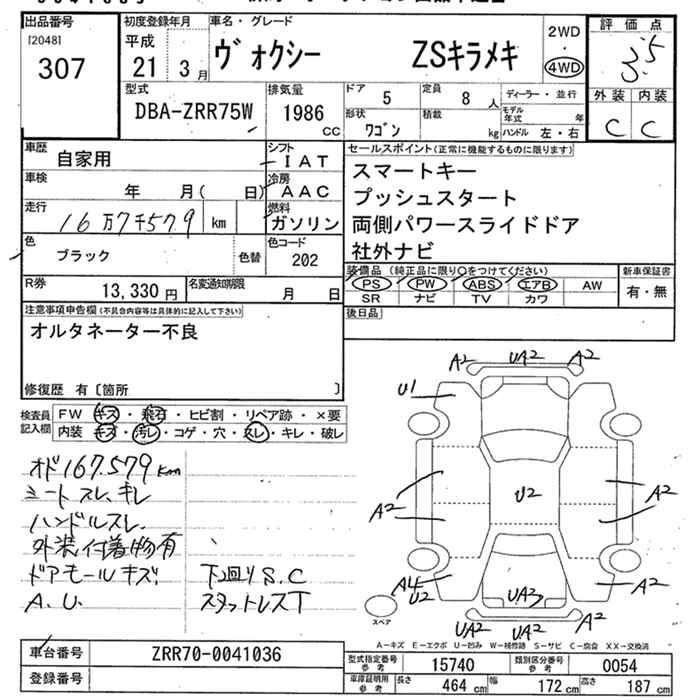 出品番号
[2048]
307
初度登録年月
平成
21 3月
車名・グレード
ヴォクシー ZSキラメキ
2WD
・
4WD
評価点
3.5
外装 内装
C C
型式
DBA-ZRR75W
排気量
1986
CC
ドア
5
定員
8 人
ディーラー・並行
形状
ワゴン
積載
kg
モデル年式 年
ハンドル 左・右
車歴
自家用
シフト
IAT
車検
年 月( 日)
冷房
AAC
走行
16万7千579 km
燃料
ガソリン
色
ブラック
色替
色コード
202
R券
13,330円
名変通知期限
月 日
セールスポイント(正常に機能するものに限ります)
スマートキー
プッシュスタート
両側パワースライドドア
社外ナビ
装備品(純正品に限り○をつけてください)
PS PW ABS エアB AW
SR ナビ TV カワ
新車保証書
有・無
後日品
注意事項申告欄(不具合内容等は具体的に記入して下さい)
オルタネーター不良
修復歴 有〔箇所 〕
検査員記入欄
FW キズ・飛石・ヒビ割・リペア跡・×要
内装 キズ・汚レ・コゲ・穴・スレ・キレ・破レ
オド167.579km
シートスレ、キレ
ハンドルスレ
外装付着物有
ドアモールキズ
A.U.
下回りS.C
スタットレスT
A2 UA2 A2
U1
A2 U2 A2
A2
A4
U2
UA3
A2
UA2 UA2 A2
スペア
A-キズ E-エクボ U-凹み W-補修跡 S-サビ C-腐食 XX-交換済
車台番号
ZRR70-0041036
登録番号
型式指定番号 参考
15740
類別区分番号 参考
0054
車庫証明用 参考
長さ 464 cm
幅 172 cm
高さ 187 cm